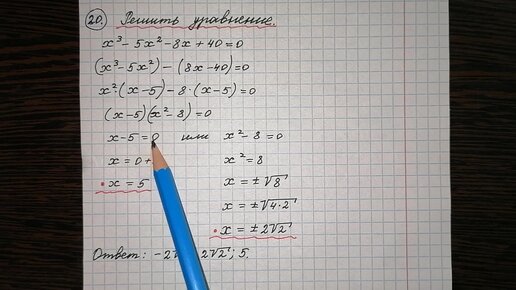 20. Решить уравнение.
x³ - 5x² - 8x + 40 = 0
(x³ - 5x²) - (8x - 40) = 0
x² · (x - 5) - 8 · (x - 5) = 0
(x - 5)(x² - 8) = 0
x - 5 = 0 или x² - 8 = 0
x = 0 + x² = 8
x = 5 x = ±√8
x = ±√4·2
x = ±2√2
Ответ: -2√ 2√2; 5.